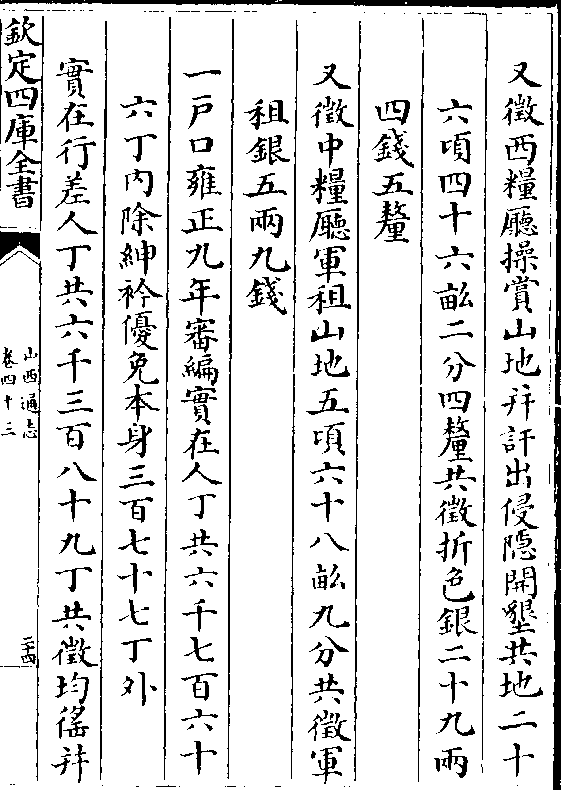 又徵西糧廳操賞山地并訐出侵隱開墾共地二十
六頃四十六畝二分四釐共徵折色銀二十九兩
四錢五釐
又徵中糧廳軍租山地五頃六十八畝九分共徵軍
租銀五兩九錢
一戸口雍正九年審編實在人丁共六千七百六十
六丁内除紳衿優免本身三百七十七丁外
實在行差人丁共六千三百八十九丁共徵均徭并
欽定四庫全書
山西通志
卷四十三
二十四